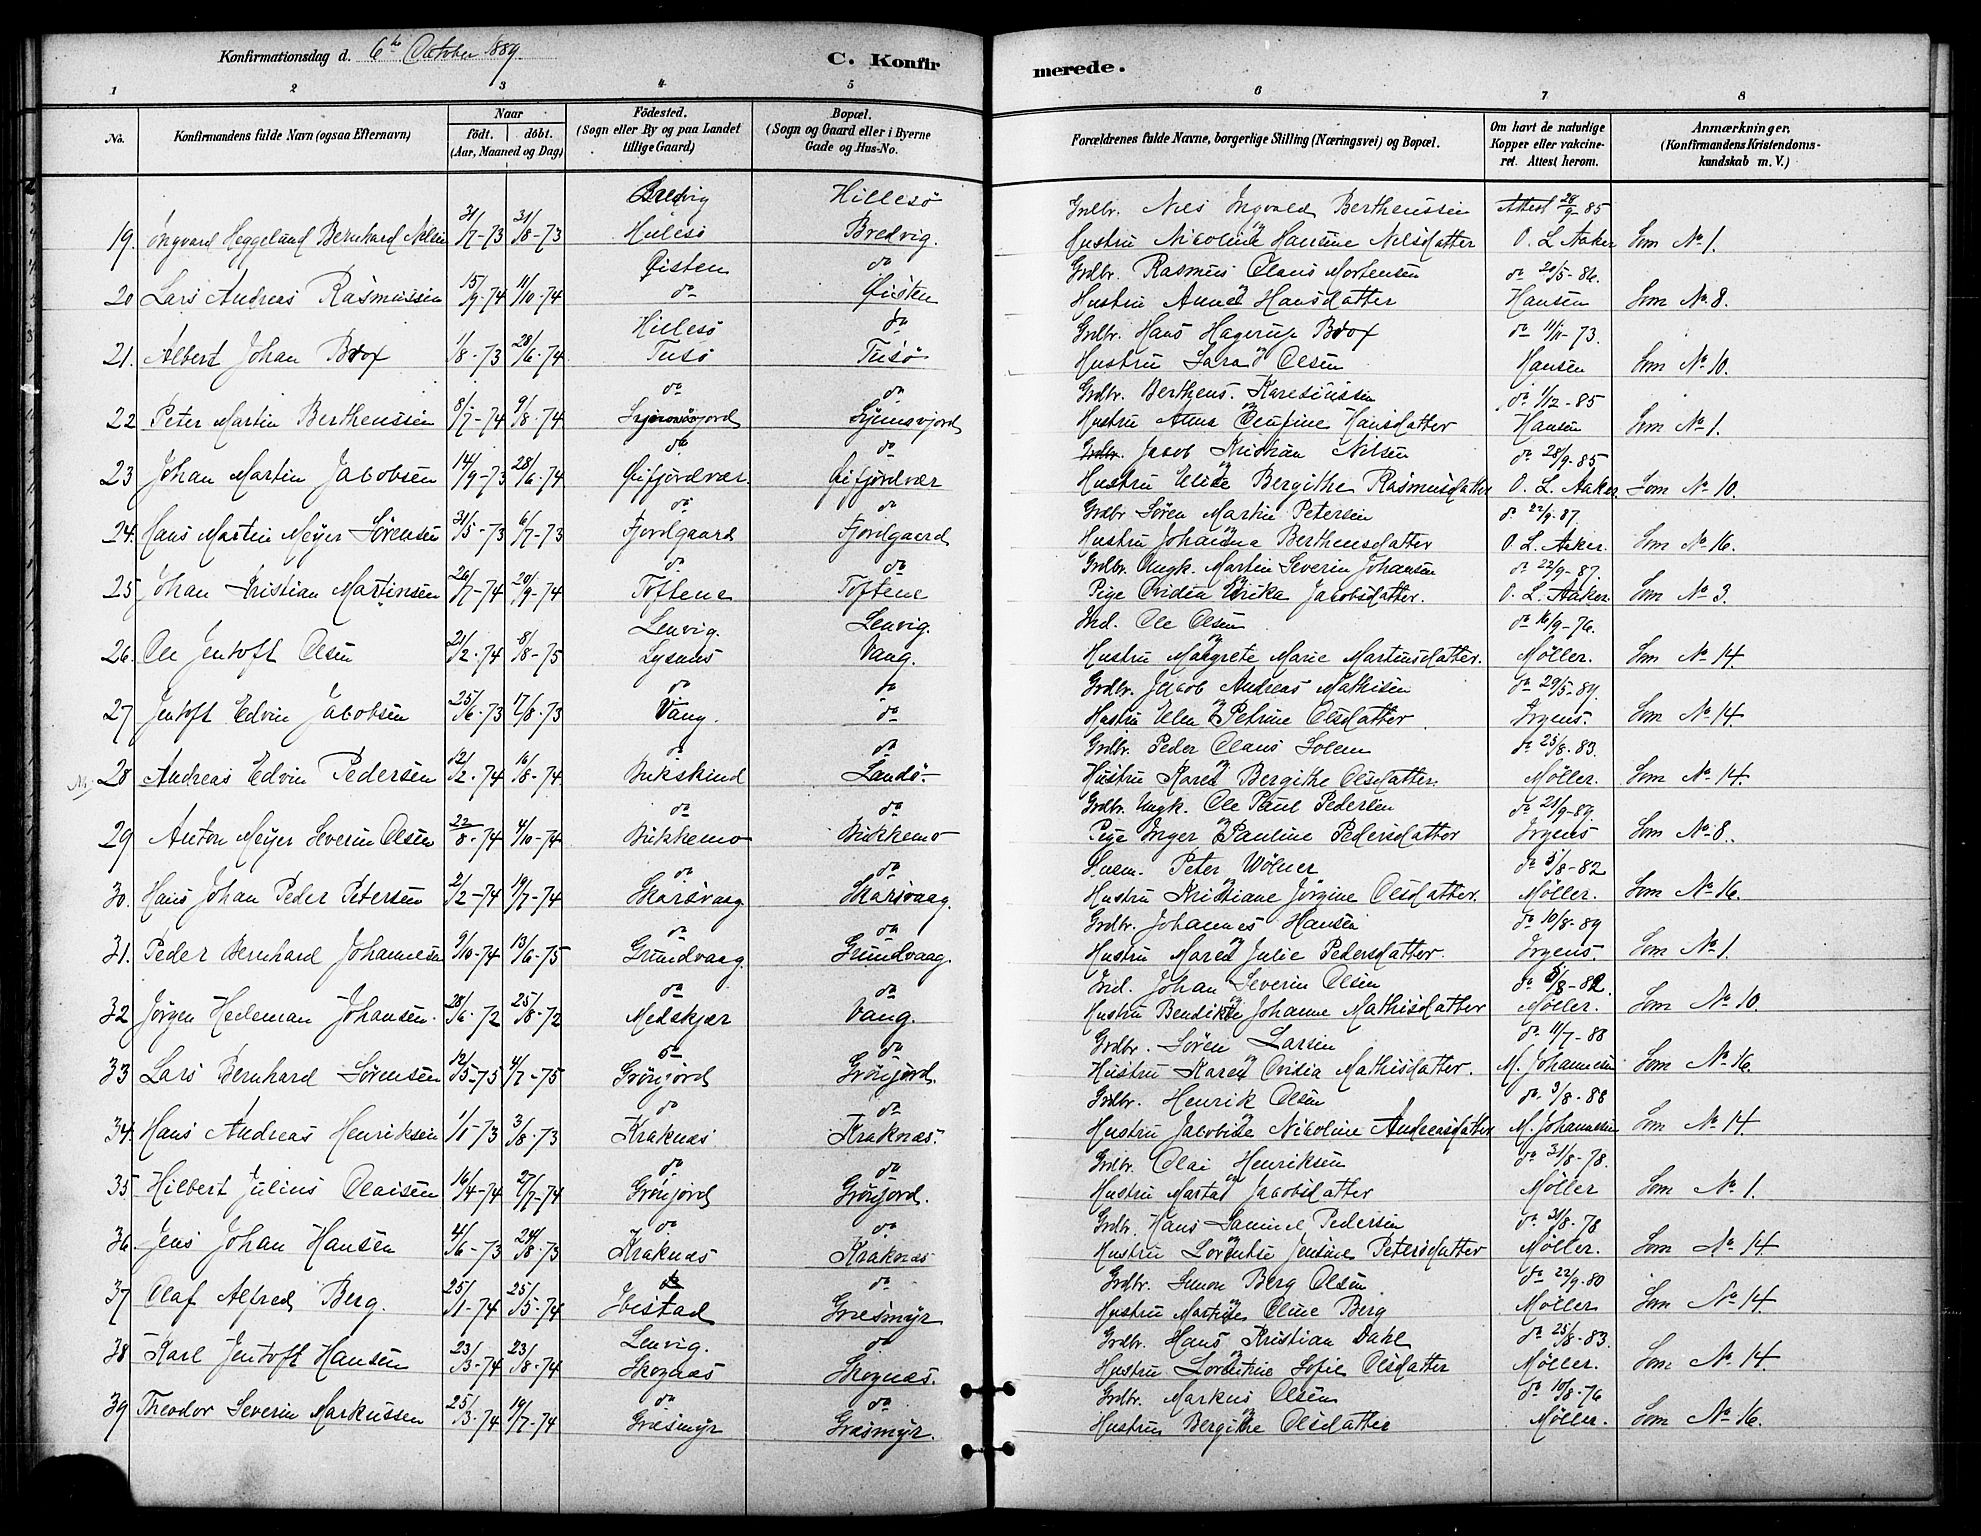 Konfirmationsdag d. 6te October 1889.
C. Konfirmerede.
1 2 3 4 5 6 7 8
No. Konfirmandens fulde Navn (ogsaa Efternavn) Naar födt. döbt. (Aar, Maaned og Dag) Födested. (Sogn eller By og paa Landet tillige Gaard) Bopæl. (Sogn og Gaard eller i Byerne Gade og Hus-No. Forældrenes fulde Navne, borgerlige Stilling (Næringsvei) og Bopæl. Om havt de naturlige Kopper eller vakcineret. Attest herom. Anmærkninger. (Konfirmandens Kristendomskundskab m. V.)
Hillesö Grdbr. Nils Ingvald Bertheussen Attest 28/9 85
19. Ingvard Heggelund Bernhard Nilsen 31/7-73 31/8-73 Hillesö Bredvig. Hustru Nicoline Hansine Nilsdatter O. L. Aaker Som No 1.
Öisten do Grdbr. Rasmus Claus Mortensen do 20/5-86.
20 Lars Andreas Rasmussen 15/9-74 11/10-74 do Öisten Hustru Anne Hansdatter Hansen Som No 8.
Hillesö do Grdbr. Hans Hagerup Brox do 11/11-73.
21. Albert Johan Brox 1/8-73 28/6-74 Tusö Tusö Hustru Sara Olsen Hansen Som No 10.
do do Grdbr. Bertheus Karesiussen do 1/12-85
22 Peter Martin Berthenssen 8/7-74 9/8-74 Hustru Anna Olufine Hansdatter Hansen Som No 1.
do do Grdbr. Jacob Kristian Nilsen do 28/9-85
23 Johan Martin Jacobsen 14/9-73 28/6-74 Öifjordvær. Öifjordvær Hustru Elise Bergithe Rasmusdatter O. L. Aaker Som No 10.
do do Grdbr Sören Martin Petersen do 22/9-87.
24. Hans Martin Meyer Sörensen 31/5-73 6/7-73 Fjordgaard Fjordgaard Hustru Johanna Bertheusdatter O. L. Aaker. Som No 16.
do do Grdbr. Ungk. Martin Severin Johansen do 22/9-87.
25 Johan Kristian Martinsen 26/7-74 20/9-74 Töftene Töftene Pige Ovidia Erika Jacobsdatter. O. L. Aaker. Som No 3.
Lenvig. Lenvig. Ind. Ole Olsen do 16/9-76.
26. Ole Jentoft Olsen 21/2-74 8/8-75 Lysnes Vang. Hustru Margrete Marie Martinsdatter. Möller. Som No 14
do do Grdbr. Jacob Andreas Mathisen do 29/5-89.
27 Jentoft Edvin Jacobsen 25/6-73 17/8-73 Vang. do Hustru Elen Petrine Olsdatter Irgens. Som No 14.
do do Grdbr. Peder Claus Solem do 25/8-83.
28 Andreas Edvin Pedersen 12/2-74 16/8-74 Bukskind Sandö Hustru Karen Bergithe Olsdatter. Möller. Som No 14.
do do Grdbr. Ungk. Ole Paul Pedersen do 28/9-89.
29 Anton Meyer Severin Olsen 22/8-74 4/10-74 Bukkemo Bukkemo Pige Inger Pauline Pedersdatter Irgens Som No 8.
do do Husm. Peter Wölner do 5/8-82
30. Hans Johan Peder Petersen 2/2-74 19/7-74 Skarsvaag Skarsvaag. Hustru Kristiane Jörgine Olsdatter. Möller. Som No 16.
do do Grdbr. Johannes Hansen do 10/8-89
31. Peder Bernhard Johannesen 9/10-74 13/6-75 Grundvaag. Grundvaag. Hustru Maren Julie Pedersdatter. Irgens. Som No 1.
do do Ind. Johan Severin Olsen do 5/8-82.
32 Jörgen Hedeman Johansen. 28/6-72 25/8-72 Medskjær Vang. Hustru Bendikte Johanne Mathisdatter Möller. Som No 10.
do do Grdbr. Sören Larsen do 11/7-88
33 Lars Bernhard Sörensen 12/5-75 4/7-75 Grönjord Grönjord. Hustru Karen Ovidia Mathisdatter. M. Johannesen Som No 16.
do do Grdbr. Henrik Olsen do 3/8-88
34. Hans Andreas Henriksen 1/1-73 3/8-73 Kraknæs Kraknæs. Hustru Jacobine Nicoline Andreasdatter M. Johannesen Som No 14.
do do Grdbr. Olai Henriksen do 31/8-78.
35 Hilbert Julius Olaisen 16/4-74 27/7-74 Grönjord Grönjord. Hustru Marta Jacobsdatter Möller Som No 1.
do do Grdbr. Hans Samuel Pedersen do 31/8-78
36. Jens Johan Hansen 4/6-73 24/8-73 Kraknæs Kraknæs Hustru Lorentse Jensine Petersdatter Möller. Som No 14
do do Grdbr. Simon Berg Olsen do 22/9-80
37 Olaf Alfred Berg. 25/1-74 25/5-74 Ibestad Græsmyr Hustru Oline Berg Möller Som No 14
Lenvig. do Grdbr. Hans Kristian Dahl do 25/8-83.
38 Karl Jentoft Hansen 23/3-74 23/8-74 Skognæs Skognæs. Hustru Lorentine Sofie Olsdatter Möller. Som No 14
do do Grdbr. Markus Olsen do 10/8-76
39 Theodor Severin Markussen 25/3-74 19/7-74 Græsmyr Græsmyr. Hustru Bergithe Olsdatter Möller. Som No 16.